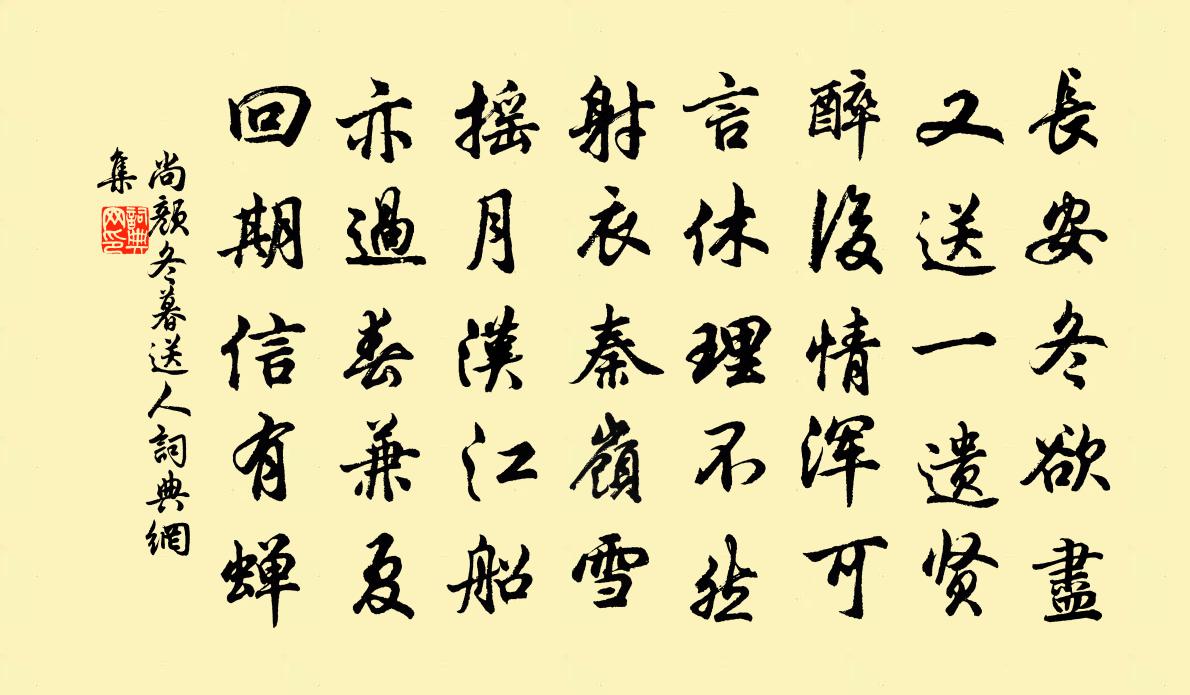 長安冬欲盡
又送一遗贤
醉後情浑可
言休理不然
射衣秦嶺雪
摇月漢江船
亦過春兼夏
回期信有蝉
尚顏冬暮送人詞典網
集
詞典
网印